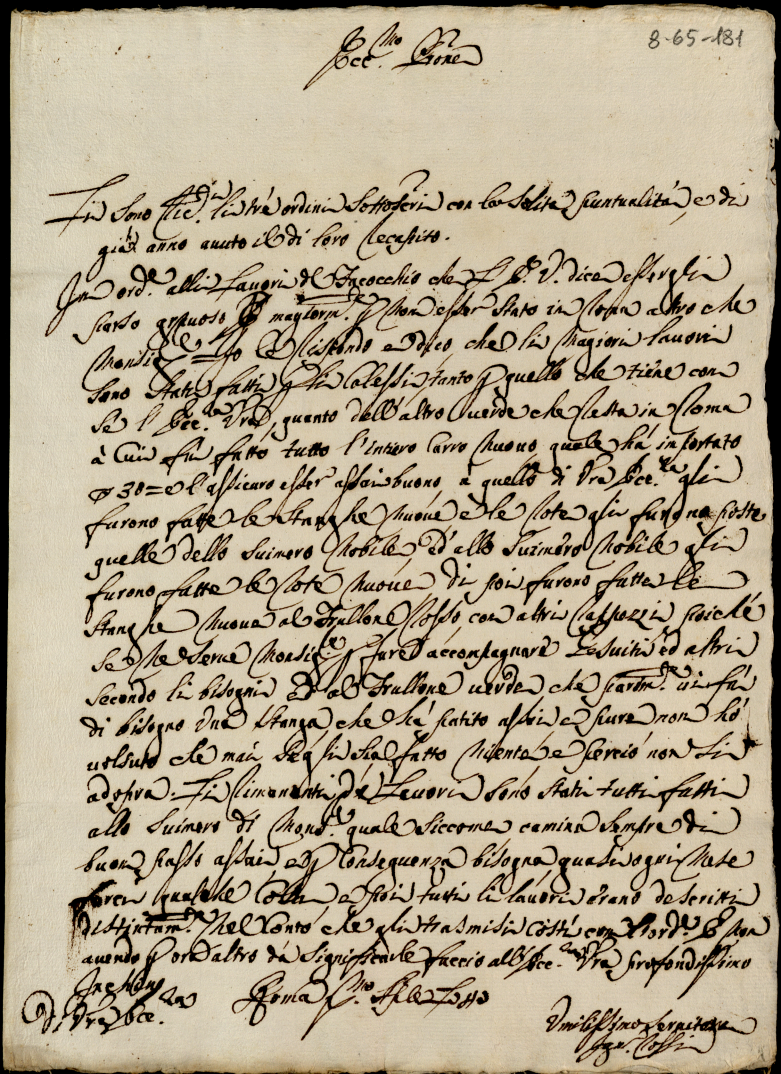 8-65-181
Ecc.mo Prone
Si sono lì tré ordini sottoscri con la solita puntualità, e di
già anno auuto il di loro recapito.
In ord.e alli Lauori del Incocchio che l' E. V. dice esser gli
parso grauoso maggiorm.te p non esser stato in Roma altro che
Monsig.re Io Rispondo e dico che li Magiori lauori
sono stati fatti p li Calessi tanto p quello che tiene con
se l' Ecc.za Vra, quanto dell'altro uerde che resta in Roma
à Cui fù fatto tutto l'intiero Carro Nuouo quale há importato
30= e l'assicuro esser assai buono à quello di Vra Ecc.za gli
furono fatte le stanghe nuoue e le rote gli furono poste
quelle dello suimero Nobile, ed' allo Suimero Nobile gli
furono fatte le rote nuoue di poi furono fatte le
stanghe nuoue al frullone rosso con altri poiché
se ne serue Monsig.re p fare accompagnare Gesuiti ed altri
secondo li bisogni ed al frullone uerde che ui fú
di bisogno una stanga, che há patito assai e pure non hó
uolsuto che mai se gli sia fatto niente e perció non si
adopra. Li rimanenti de Lauori sonó stati tutti fatti
allo suimero di Mons.r quale siccome camina sempre di
buon passo assai e p Conseguenza bisogna quasi ogni Mese
farci qualche Cosa e poi tutti li lauori érano descritti
distintam.te nel Conto che gli trasmisi costí non
auendo p ora altro dà significarle faccio all' Ecc.za Vra profondissimo
Inchino
Di Vra Ecc.za Roma P.mo
Vmilissimo Seruitore
Rossi